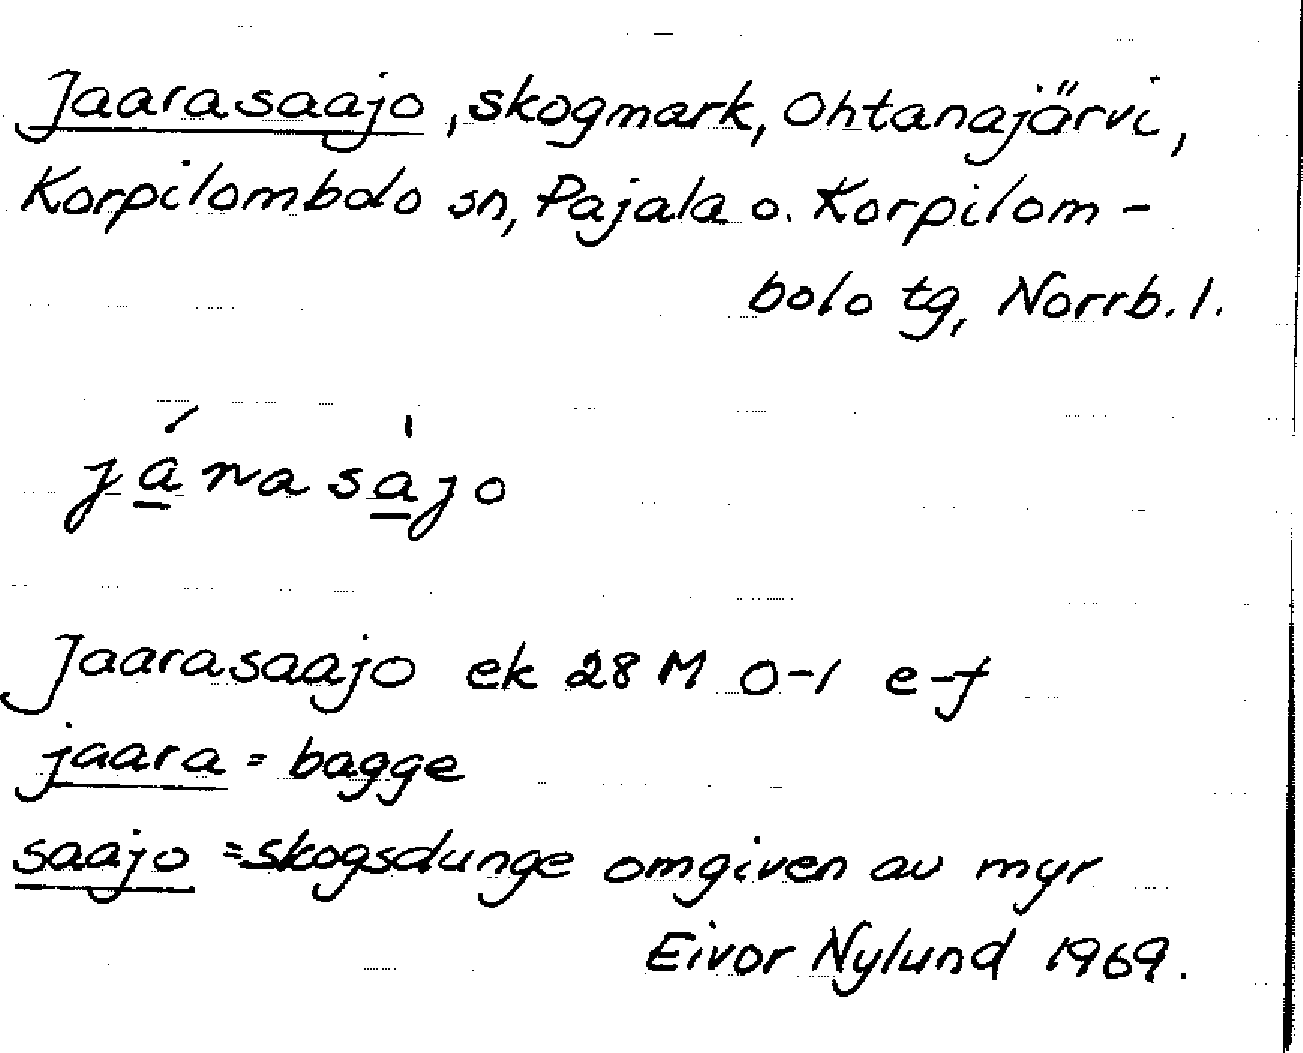 Jaarasaajo, skogmark, Ohtanajärvi,
Korpilombolo sn, Pajala o. Korpilom-
bolo tg, Norrb. l.
já̱rasa̱̍jo
Jaarasaajo ek 28 M 0-1 e-f
jaara = bagge
saajo = skogsdunge omgiven av myr
Eivor Nylund 1969.